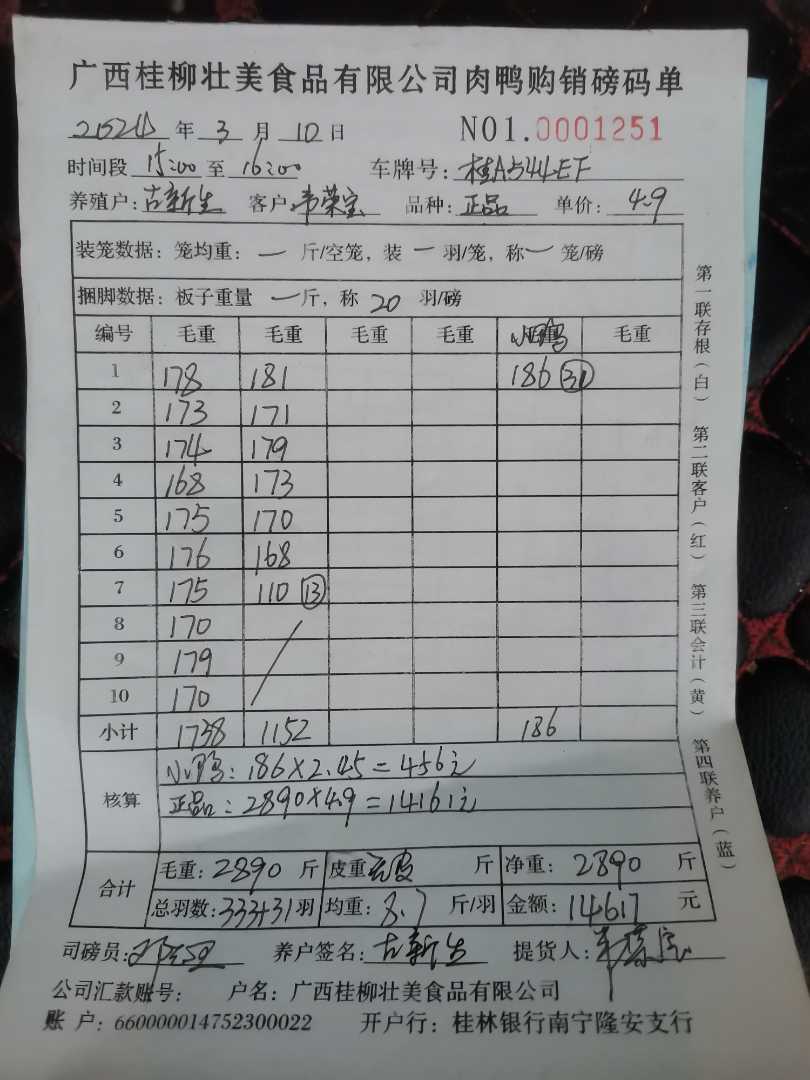 广西桂柳壮美食品有限公司肉鸭购销磅码单
2024 年 3 月 10 日 NO1.0001251
时间段 15:00 至 16:00 车牌号: 桂A544EF
养殖户: 古新生 客户: 韦荣宝 品种: 正品 单价: 4.9
装笼数据: 笼均重: 一 斤/空笼, 装 一 羽/笼, 称 一 笼/磅
捆脚数据: 板子重量 一 斤, 称 20 羽/磅
编号 毛重 毛重 毛重 毛重 小鸭 毛重
1 178 181 186 (31)
2 173 171
3 174 179
4 168 173
5 175 170
6 176 168
7 175 110 (13)
8 170
9 179
10 170
小计 1738 1152 186
核算
小鸭: 186×2.45=456元
正品: 2890×4.9=14161元
合计
毛重: 2890 斤 皮重 去皮 斤 净重: 2890 斤
总羽数: 333+31 羽 均重: 8.7 斤/羽 金额: 14617 元
司磅员: 养户签名: 古新生 提货人: 韦荣宝
公司汇款账号: 户名: 广西桂柳壮美食品有限公司
账 户: 660000014752300022 开户行: 桂林银行南宁隆安支行
第一联存根(白) 第二联客户(红) 第三联会计(黄) 第四联养户(蓝)